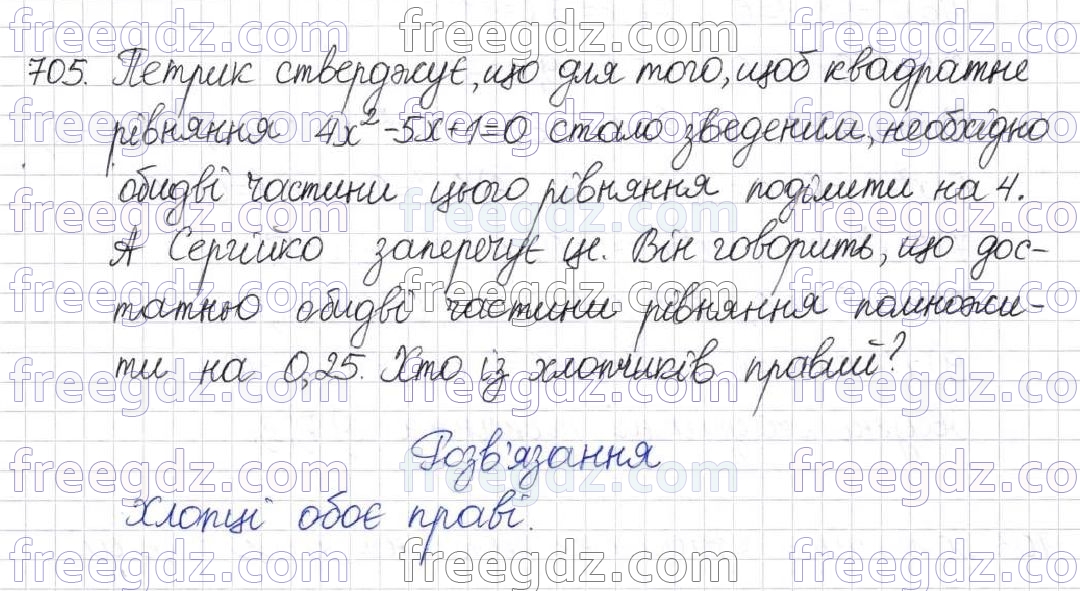 705. Петрик стверджує, що для того, щоб квадратне
рівняння 4x²-5x+1=0 стало зведеним, необхідно
обидві частини цього рівняння поділити на 4.
А Сергійко заперечує це. Він говорить, що дос-
татньо обидві частини рівняння помножи-
ти на 0,25. Хто із хлопчиків правий?
Розв'язання
Хлопці обоє праві.
freegdz.com